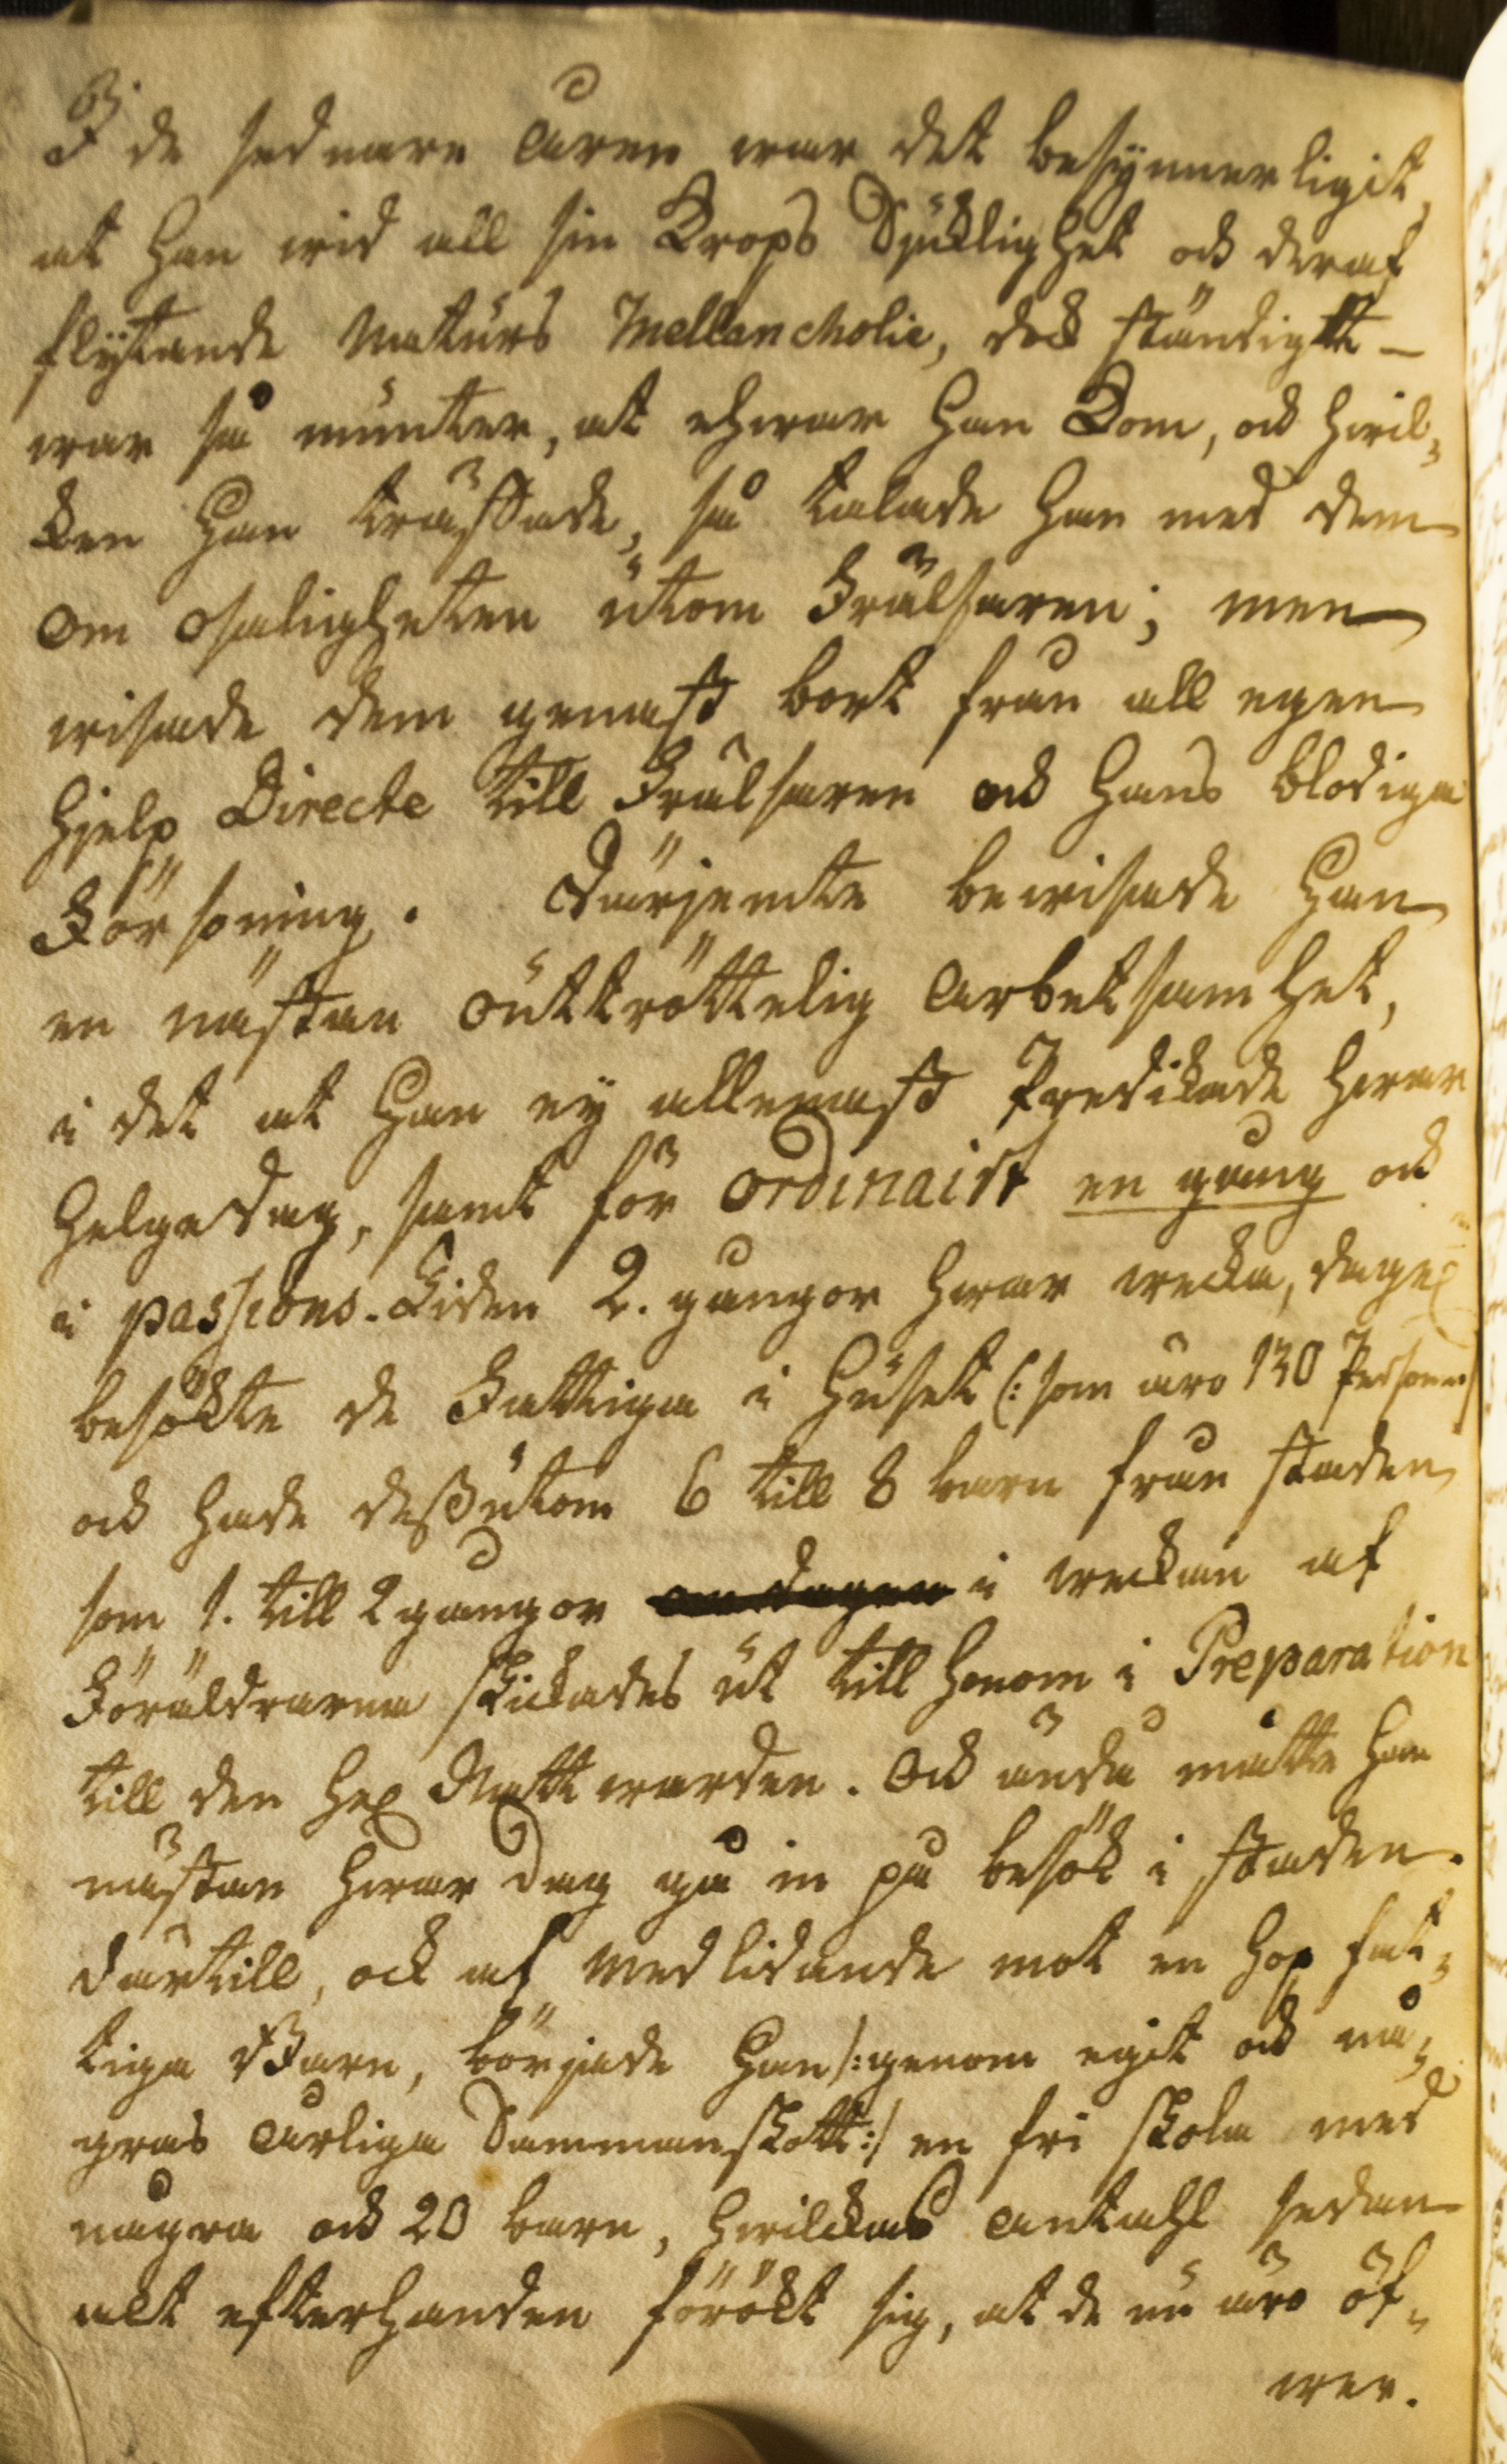 I de sednare åren war det besynnerligit,
at Han wid all sin Krops Sjuklighet ock deraf
flytande Naturs Mellancholie, dock ständigtt –
war så munter, at ehwar Han Kom, ock hwil-
ken Han träffade, så talade Han med dem
om osaligheten utom Frälsaren; men
wisade dem genast bort från all egen
hjelp Directe till Frälsaren ock Hans blodiga
Försoning. Därjemte bewisade Han
en nästan outtröttelig arbetsamhet,
i det at Han ej allenast Predikade hwar
Helgedag, samt för ordinairt en gång ock
i passions-Tiden 2. gångor hwar wecka, dagel.
besökte de Fattiga i Huset (: som äro 130 Personer
ock hade dessutom 6 till 8 barn från staden
som 1. till 2 gångor i weckan af
Föräldrarna skickades ut till honom i Preparation
till den Hel. Nattwarden. Ock ändå måtte Han
nästan hwar dag gå in på besök i staden.
Därtill, ock af medlidande mot en hop fat-
tiga Barn, började Han /: genom eget ock nå-
gras årliga Sammanskott :/ en fri skola med
några ock 20 barn, hwilckas antahl sedan
alt efterhanden förökt sig, at de nu äro öf-
wer.